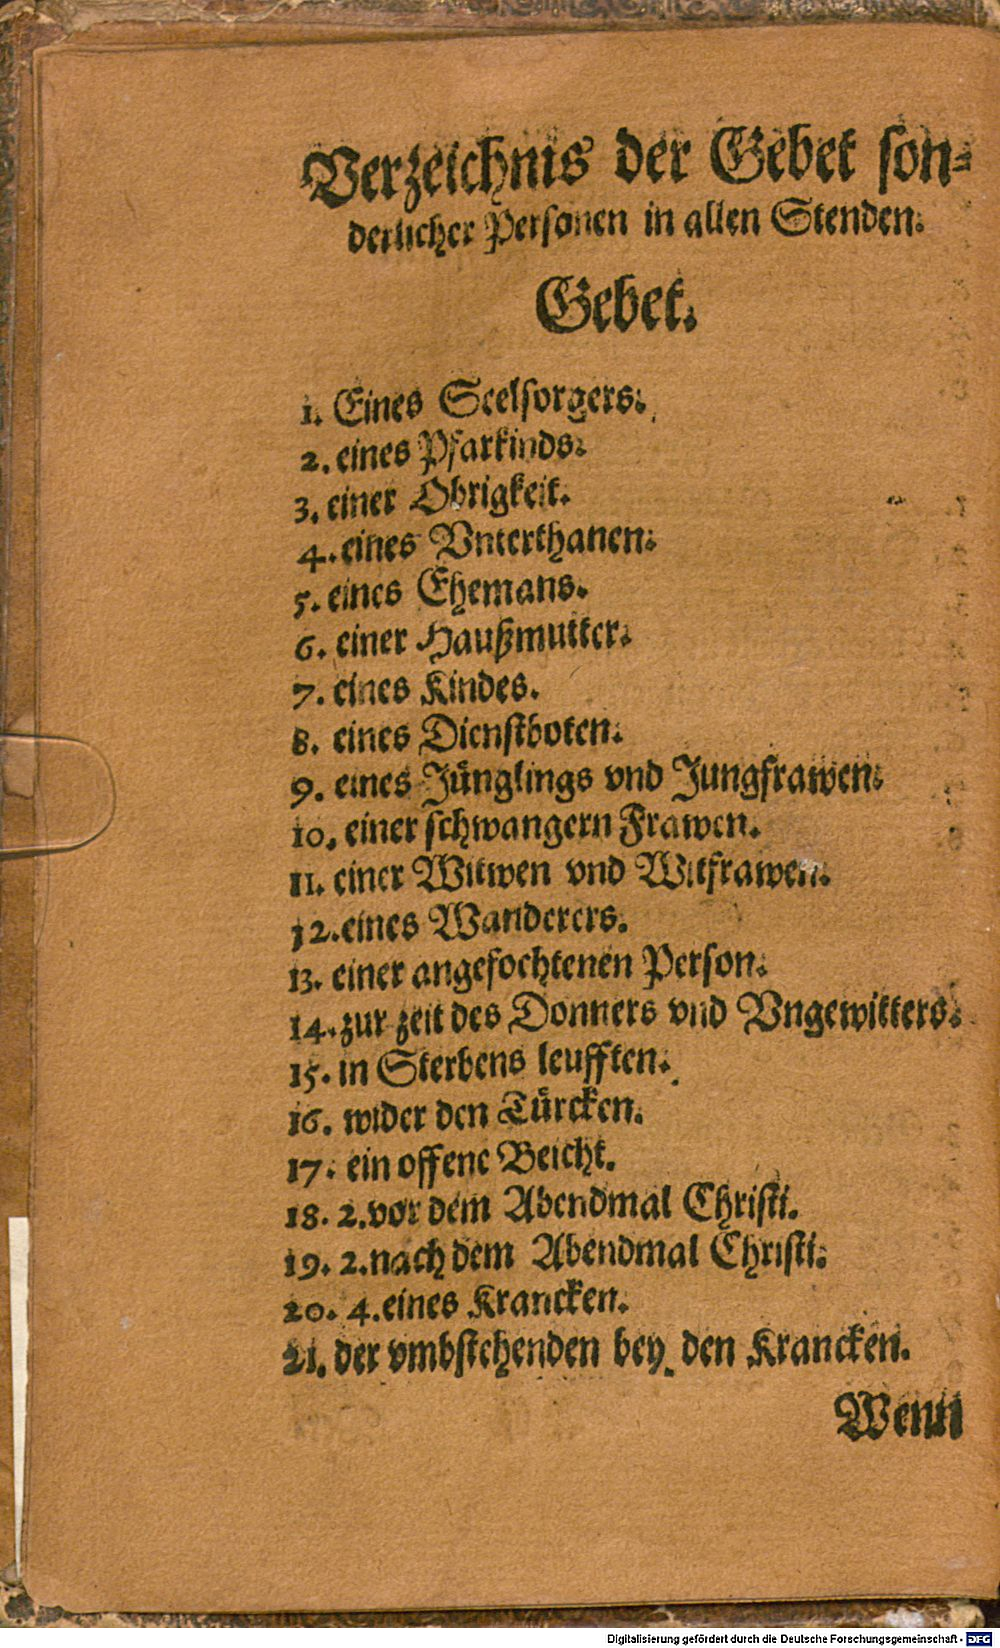 Verzeichnis der Gebet son-
derlicher Personen in allen Stenden.
Gebet.
1. Eines Seelsorgers.
2. eines Pfarkinds.
3. einer Obrigkeit.
4. eines Vnterthanen.
5. eines Ehemans.
6. einer Haußmutter.
7. eines Kindes.
8. eines Dienstboten.
9. eines Jünglings vnd Jungfrawen.
10. einer schwangern Frawen.
11. einer Witwen vnd Witfrawen.
12. eines Wanderers.
13. einer angefochtenen Person.
14. zur zeit des Donners vnd Vngewitters.
15. in Sterbens leufften.
16. wider den Türcken.
17. ein offene Beicht.
18. 2. vor dem Abendmal Christi.
19. 2. nach dem Abendmal Christi.
20. 4. eines Krancken.
21. der vmbstehenden bey den Krancken.
Wenn
Digitalisierung gefördert durch die Deutsche Forschungsgemeinschaft - DFG